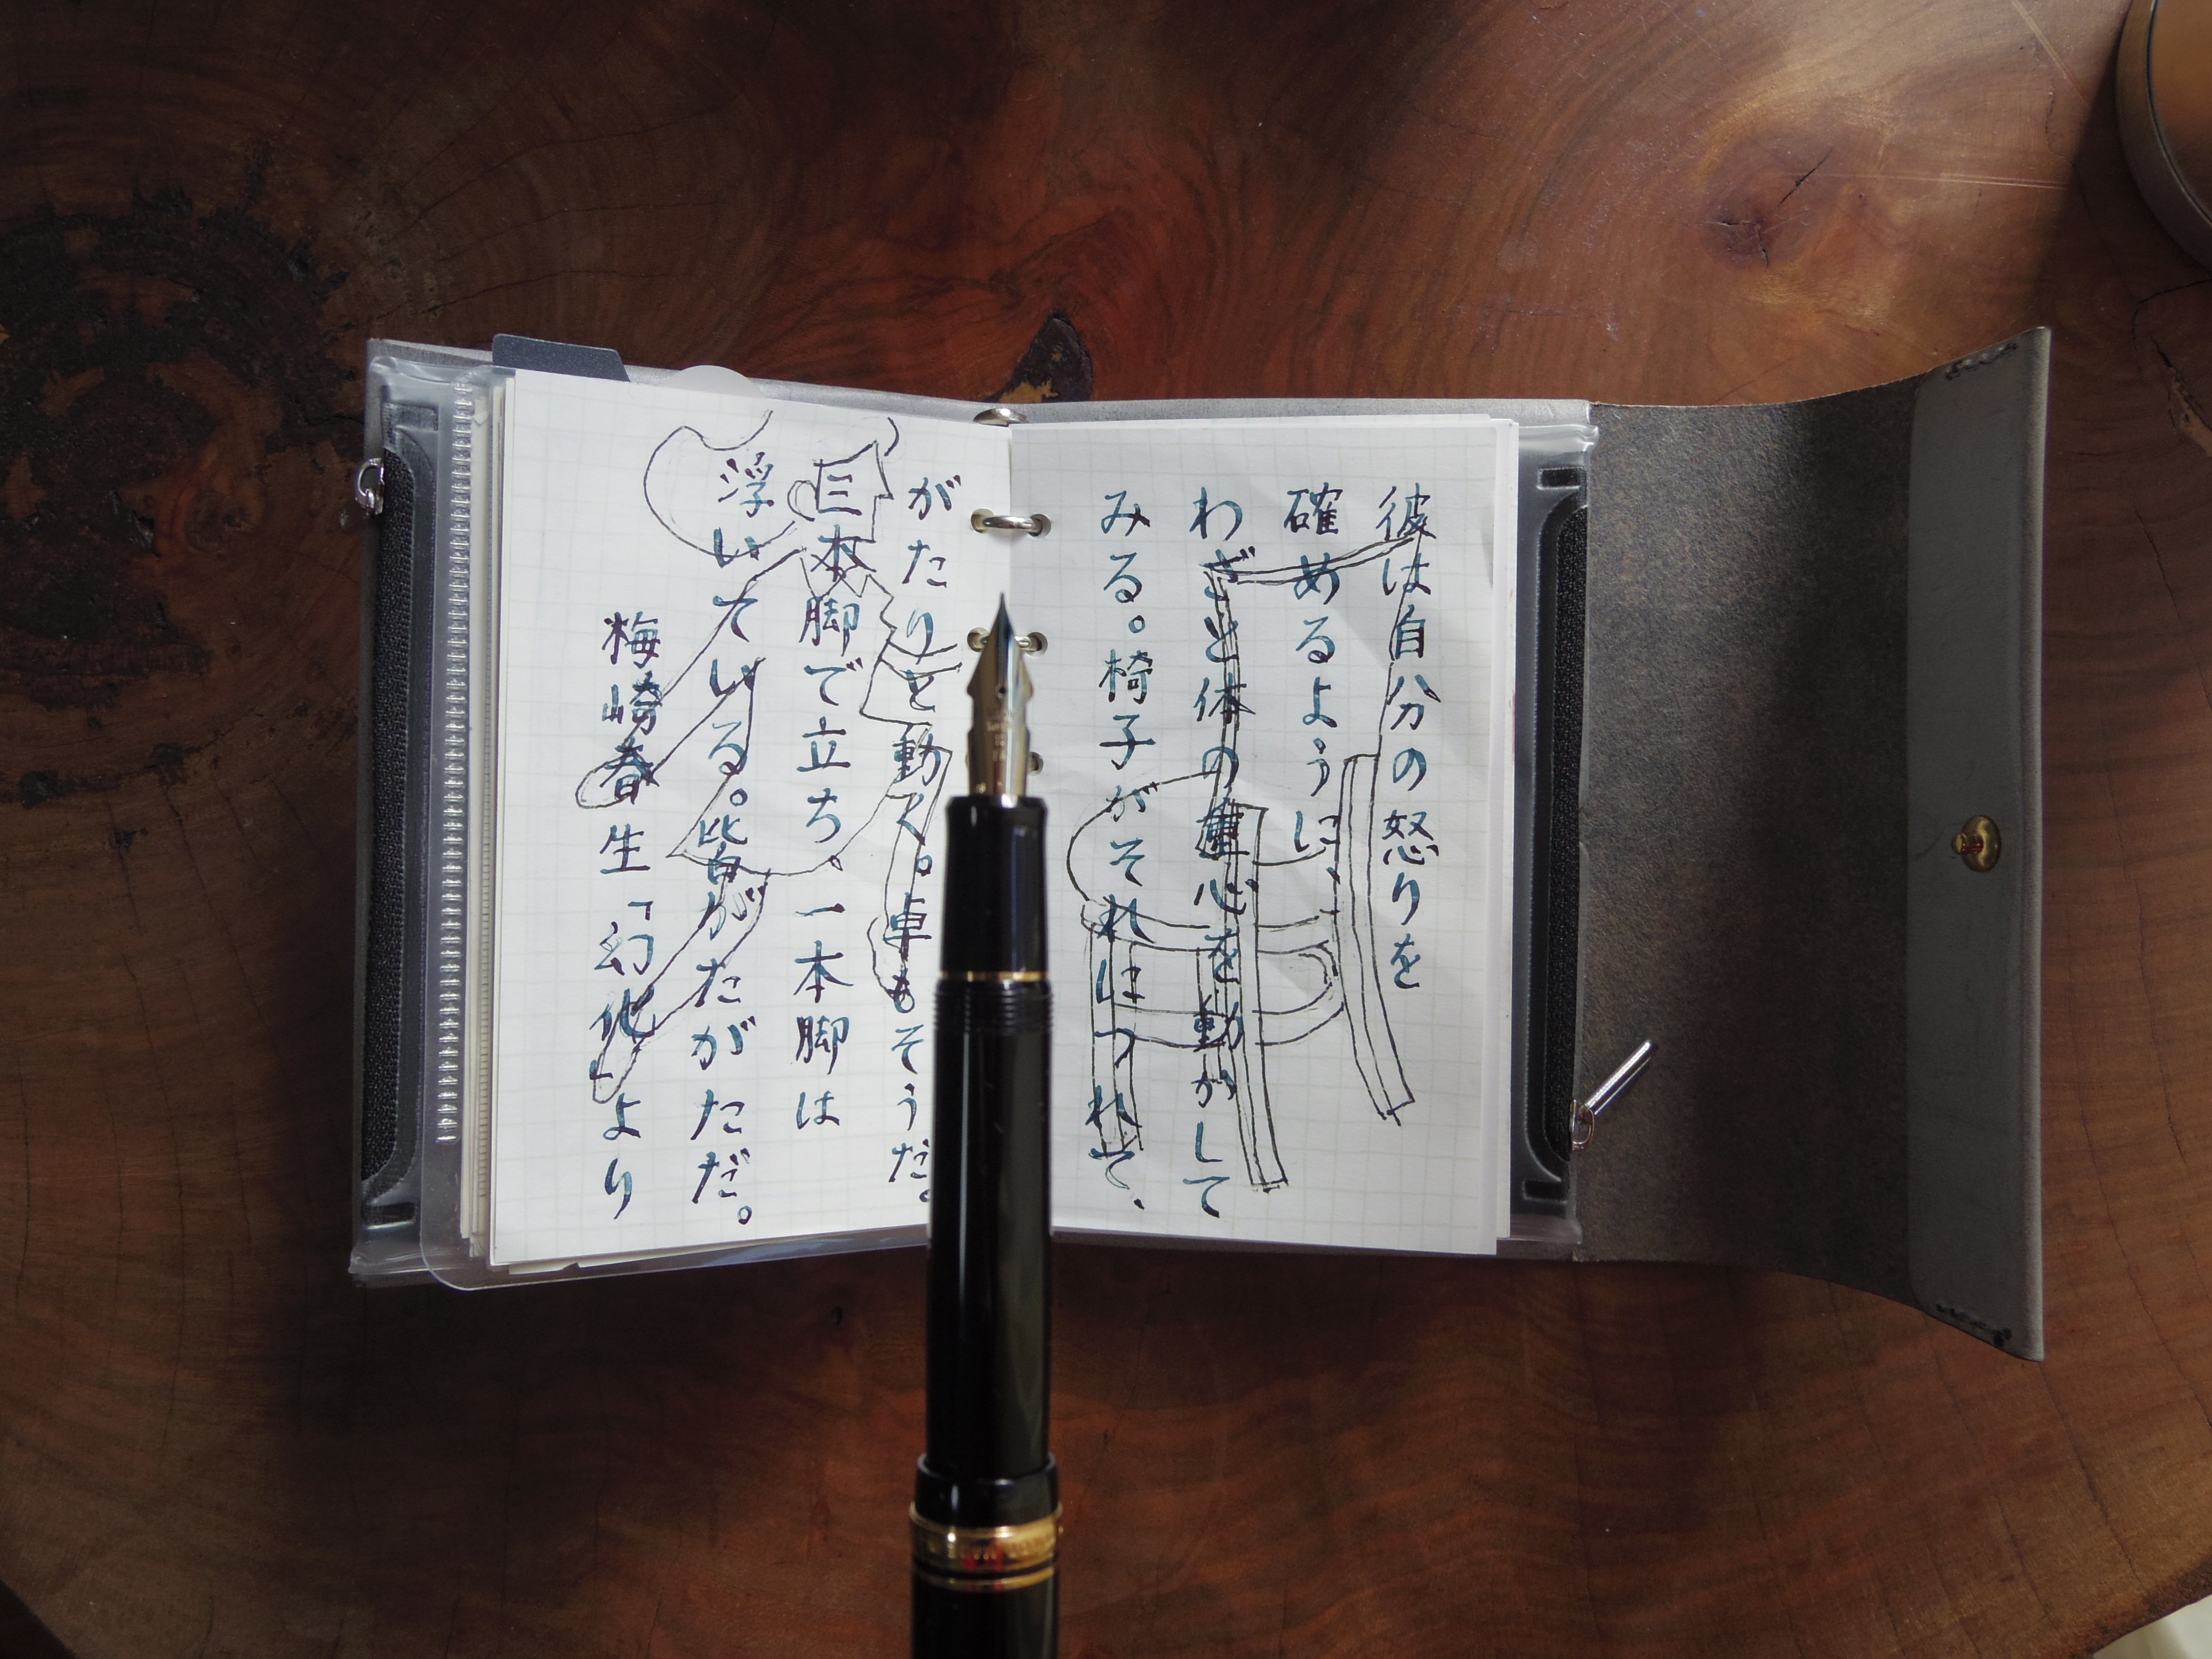 彼は自分の怒りを
確めるように、
わざと体の重心を動かして
みる。椅子がそれにつれて、
がたりと動く。卓もそうだ。
三本脚で立ち、一本脚は
浮いている。皆がたがただ。
梅崎春生「幻化」より